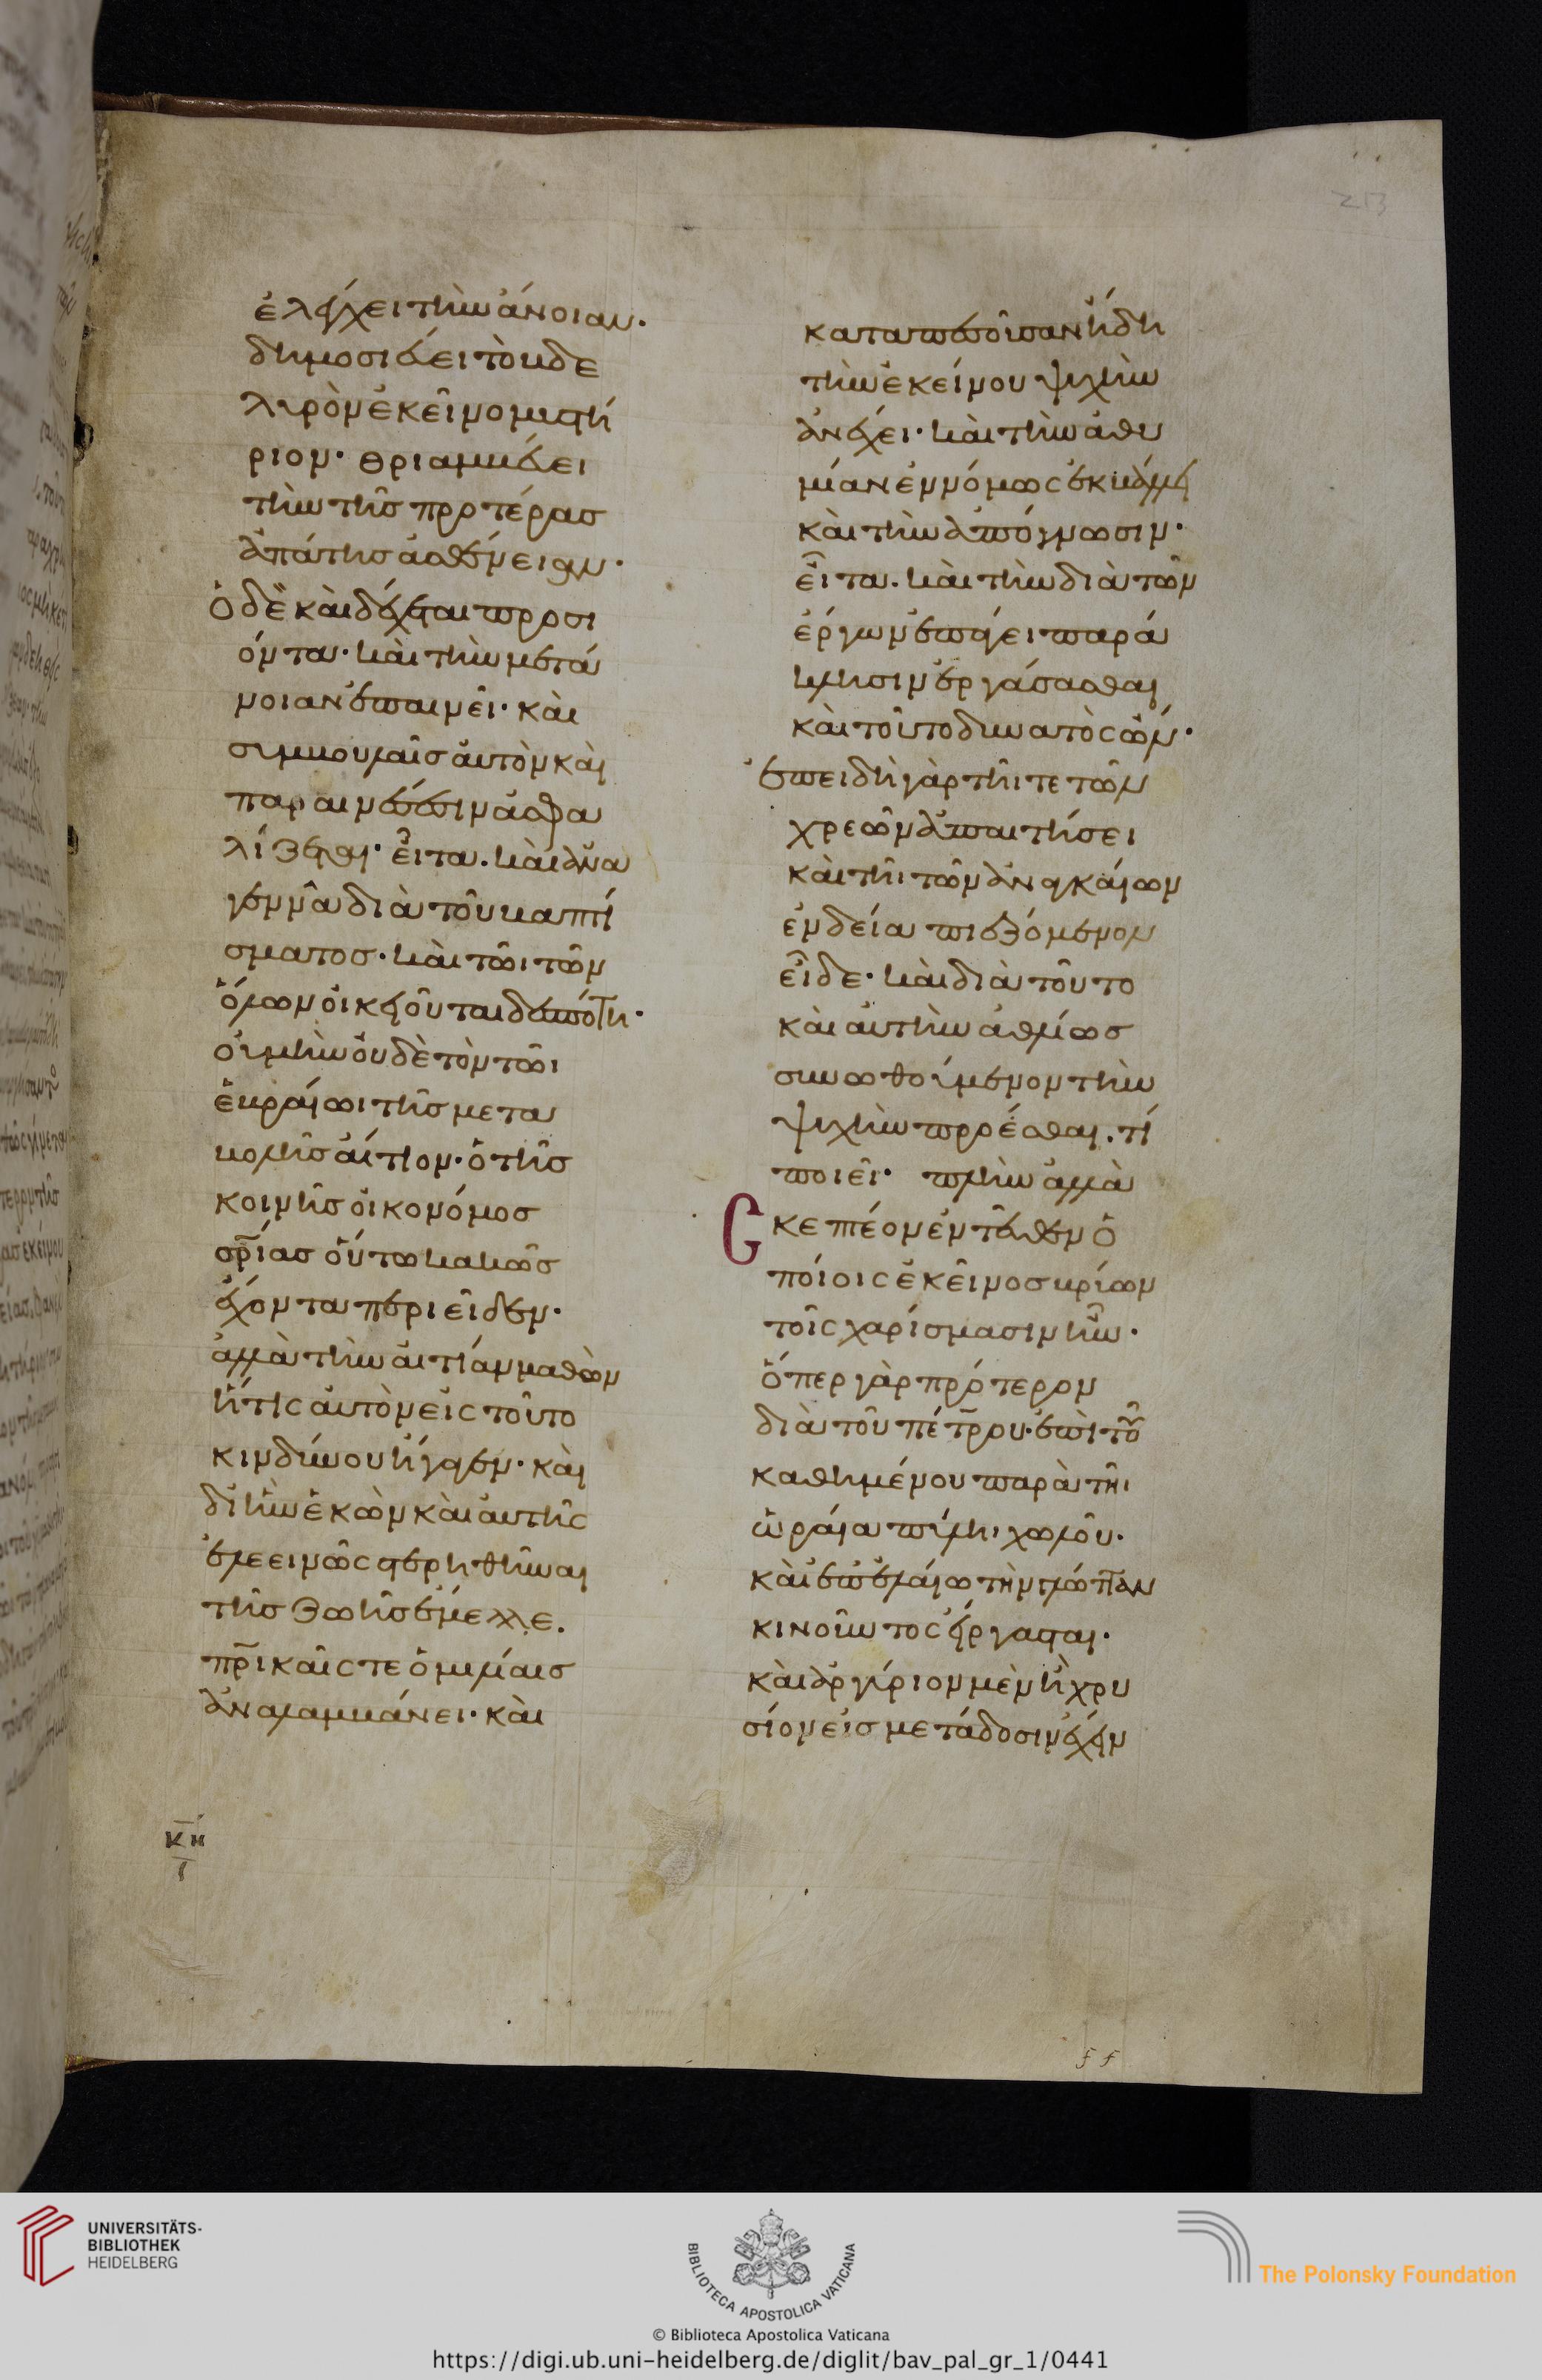 ἐλέγχει τὴν ἄνοιαν·
δημοσιεύει τὸν δο
λερὸν ἐκεῖνο μυστή
ριον· θριαμβεύει
τὴν τῆς προτέρας
ἀπάτης ἀσθένειαν·
ὁ δὲ καὶ δέχεται προσι
όντα· καὶ τὴν μετά
νοιαν ἐπαινεῖ· καὶ
συμβουλαῖς αὐτὸν καὶ
παραινέσεσιν ἀσφα
λίζεται· εἶτα. καὶ ἀνα
γεννᾶ διὰ τοῦ βαπτί
σματος· καὶ τῶι τῶν
ὅλων οἰκειοῦται δεσπότη·
οὐ μὴν οὐδὲ τὸν τῶι
ἑβραίωι τῆς μετα
βολῆς αἴτιον· ὁ τῆς
κοινῆς οἰκονόμος
σρίας οὕτω κακῶς
ἔχοντα περιεῖδεν·
ἀλλὰ τὴν αἰτίαν μαθὼν
ἥτις αὐτὸν εἰς τοῦτο
κινδύνου ἤγαγεν· καὶ
δι ἣν ἑκὼν καὶ αὐτῆς
ἐλεεινῶς στερηθῆναι
τῆς ζωῆς ἔμελλε.
πρικαῖς τε ὁμιλίαις
ἀναλαμβάνει· καὶ
καταπεσοῦσαν ἤδη
τὴν ἐκείνου ψυχὴν
ἀνέχει· καὶ τὴν ἀθυ
μίαν ἐννόμως ἐκβάλλει
καὶ τὴν ἀπόγνωσιν·
εἶτα. καὶ τὴν διὰ τῶν
ἔργων ἐπάγει παρά
κλησιν ἐργάσασθαι
καὶ τοῦτο δυνατὸς ὤν·
ἐπειδὴ γὰρ τῆι τε τῶν
χρεῶν ἀπαιτήσει
καὶ τῆι τῶν ἀναγκαίων
ἐνδεία πιεζόμενον
εἶδε· καὶ διὰ τοῦτο
καὶ αὐτὴν ἀθλίως
συνωθούμενον τὴν
ψυχὴν προέσθαι. τί
ποιεῖ· πλὴν ἀλλὰ
Σκεπτέον ἐνταῦθεν ὁ
ποίοις ἐκεῖνος βρίων
τοῖς χαρίσμασιν ἦν·
ὅπερ γὰρ πρότερον
διὰ τοῦ πέτρου· ἐπὶ τοῦ
καθημένου παρὰ τῆι
ὡραία πύλη, χωλοῦ·
καὶ ἐπ ἐλαίω τὴν πλώτὴν
κινοῦντος ἔργασται·
καὶ ἀργύριον μὲν ἢ χρυ
σίον εἰς μετάδοσιν ἔχειν
κη
ff
UNIVERSITÄTS-
BIBLIOTHEK
HEIDELBERG
BIBLIOTECA APOSTOLICA VATICANA
The Polonsky Foundation
© Biblioteca Apostolica Vaticana
https://digi.ub.uni-heidelberg.de/diglit/bav_pal_gr_1/0441